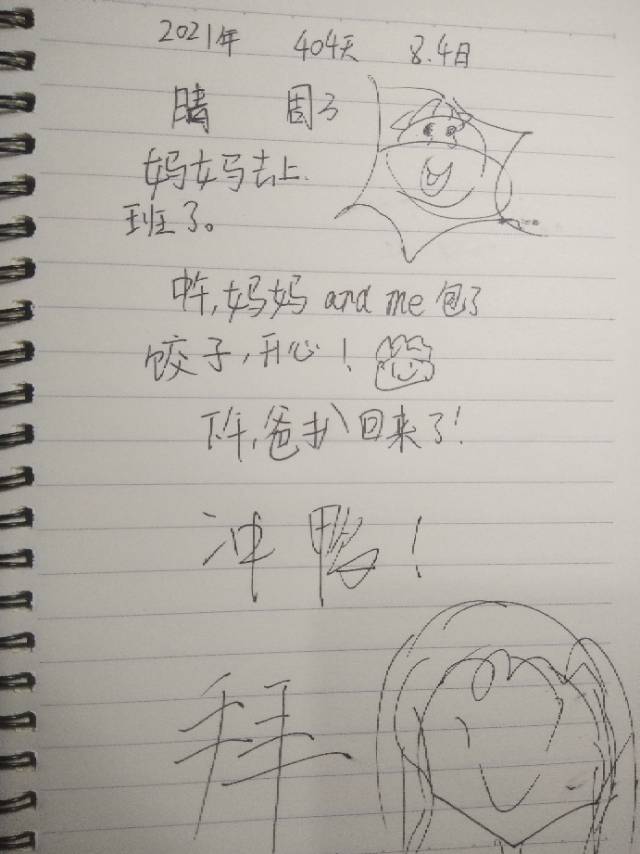 2021年 404天 8.4日
晴 周3
妈妈去上
班了。
中午,妈妈 and me 包了
饺子,开心!
下午,爸扒回来了!
冲鸭!
拜